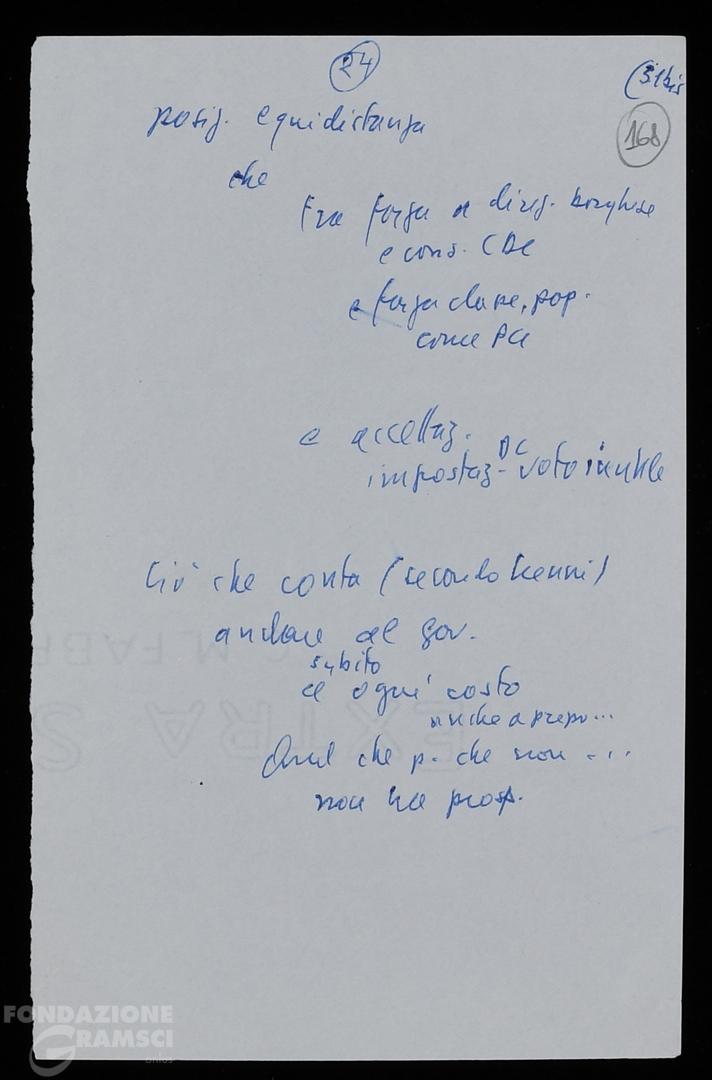 24
(31bis
168
posiz. equidistanza
che
fra forza a dirig. borghese
e cons. CDC
e forza classe, pop.
come PCI
e accettaz.
impostaz. DC voto inutile
Ciò che conta (secondo Nenni)
andare al gov.
subito
a ogni costo
anche a prezzo...
Quel che p. che non ...
non ha prosp.
C. M. FABR
EXTRA S
FONDAZIONE
GRAMSCI
onlus